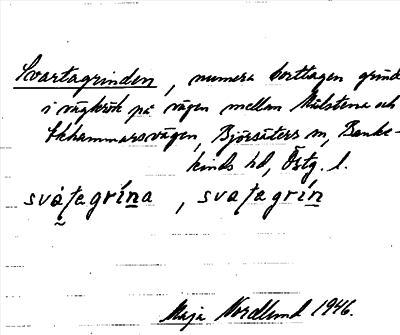 Svartagrinden, numera borttagen grind
i vägkrök på vägen mellan Mulstena och
Ekhammarsvägen, Björsäters sn, Banke-
kinds hd, Östg. l.
svátagrína, svatagrín
Maja Nordlund 1946.